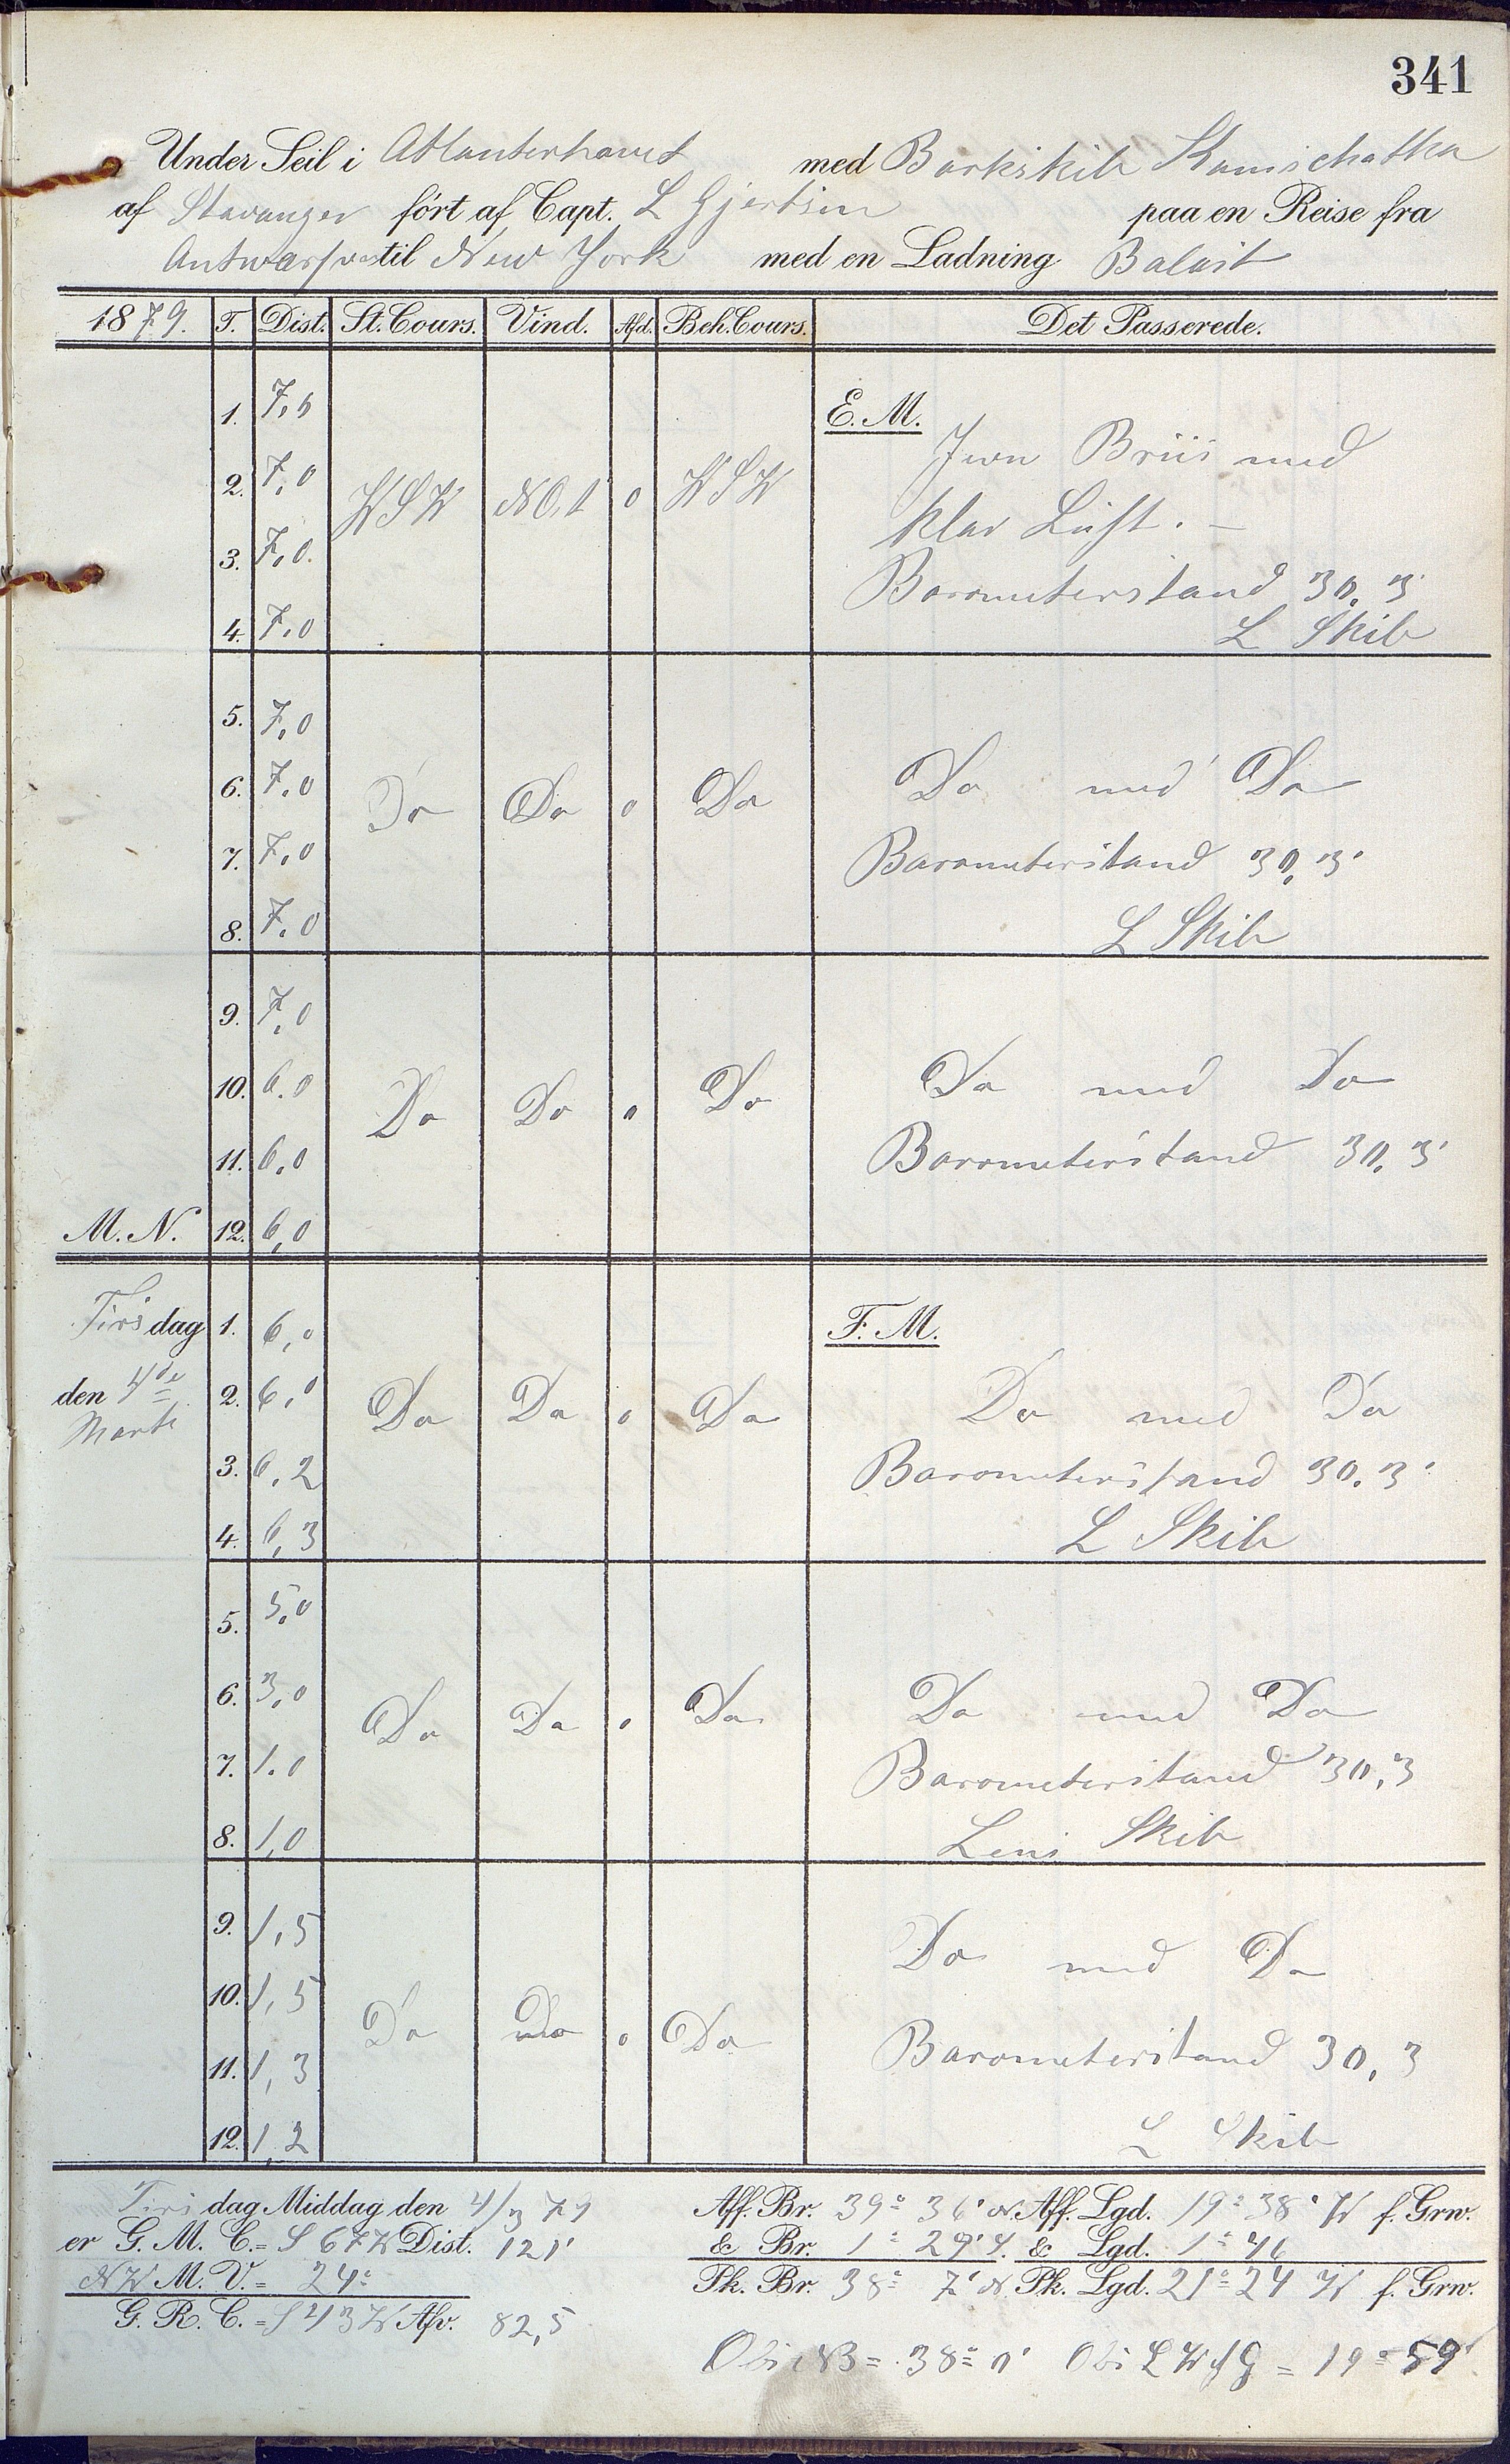 341
Under Seil i Atlanterhavet med Barkskib Kamschatka
af Stavanger ført af Capt. L Gjertsen paa en Reise fra
Antwerpen til New York med en Ladning Balast
1879. T. Dist. St. Cours. Vind. Afd. Beh. Cours. Det Passerede.
E. M.
1. 7,5
Jevn Briis med
2. 7,0 WSW NO,t 0 WSW
klar Luft. —
3. 7,0.
Barometerstand 30,3
4. 7,0
L Skib
5. 7,0
6. 7,0 Do Do 0 Do Do med Do
7. 7,0 Barometerstand 30,3
8. 7,0 L Skib
9. 7,0
10. 6.0 Do Do 0 Do Do med Do
11. 6,0 Barometerstand 30,3
M. N. 12. 6,0
Tirsdag 1. 6,0 F. M.
den 4de 2. 6,0 Do Do 0 Do Do med Do
Marts
3. 6,2 Barometerstand 30,3
4. 6,3 L Skib
5. 5,0
6. 3,0 Do Do 0 Do Do med Do
7. 1.0 Barometerstand 30,3
8. 1,0 Lens Skib
9. 1,5 Do med Do
10. 1,5 Do Do 0 Do
11. 1,3 Barometerstand 30,3
12. 1,2 L Skib
Tirsdag Middag den 4/3 79 Aff. Br. 39° 36' N. Aff. Lgd. 19° 38' W f. Grw.
er G. M. C. = S 67 W Dist. 121' & Br. 1° 29' S. & Lgd. 1° 46
NW M. V. = 24° Pk. Br. 38° 7' N Pk. Lgd. 21° 24 W f. Grw.
G. R. C. = S 43 W Afv. 82,5
Obs NB = 38° 0' Obs L W f G = 19° 59'